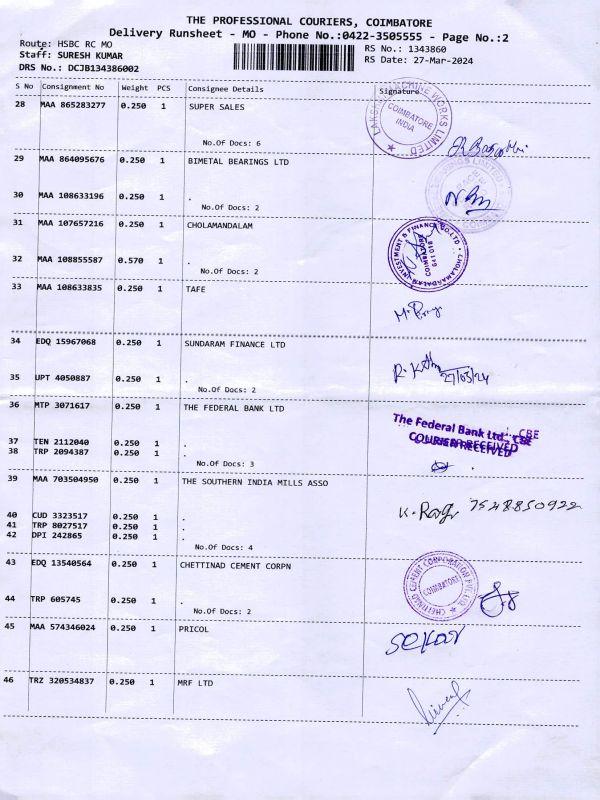 THE PROFESSIONAL COURIERS, COIMBATORE
Delivery Runsheet - MO - Phone No.:0422-3505555 - Page No.:2
Route: HSBC RC MO
RS No.: 1343860
Staff: SURESH KUMAR
RS Date: 27-Mar-2024
DRS No.: DCJB134386002
S No Consignment No Weight PCS Consignee Details Signature
28 MAA 865283277 0.250 1 SUPER SALES
COIMBATORE
INDIA
No.Of Docs: 6
29 MAA 864095676 0.250 1 BIMETAL BEARINGS LTD
30 MAA 108633196 0.250 1 .
No.Of Docs: 2
31 MAA 107657216 0.250 1 CHOLAMANDALAM
32 MAA 108855587 0.570 1 .
No.Of Docs: 2
33 MAA 108633835 0.250 1 TAFE
34 EDQ 15967068 0.250 1 SUNDARAM FINANCE LTD
27/03/24
35 UPT 4050887 0.250 1 .
No.Of Docs: 2
36 MTP 3071617 0.250 1 THE FEDERAL BANK LTD
The Federal Bank Ltd., CBE
COURIER RECEIVED
37 TEN 2112040 0.250 1 .
38 TRP 2094387 0.250 1 .
No.Of Docs: 3
39 MAA 703504950 0.250 1 THE SOUTHERN INDIA MILLS ASSO
7548850922
40 CUD 3323517 0.250 1 .
41 TRP 8027517 0.250 1 .
42 DPI 242865 0.250 1 .
No.Of Docs: 4
43 EDQ 13540564 0.250 1 CHETTINAD CEMENT CORPN
COIMBATORE
44 TRP 605745 0.250 1 .
No.Of Docs: 2
45 MAA 574346024 0.250 1 PRICOL
Sekar
46 TRZ 320534837 0.250 1 MRF LTD